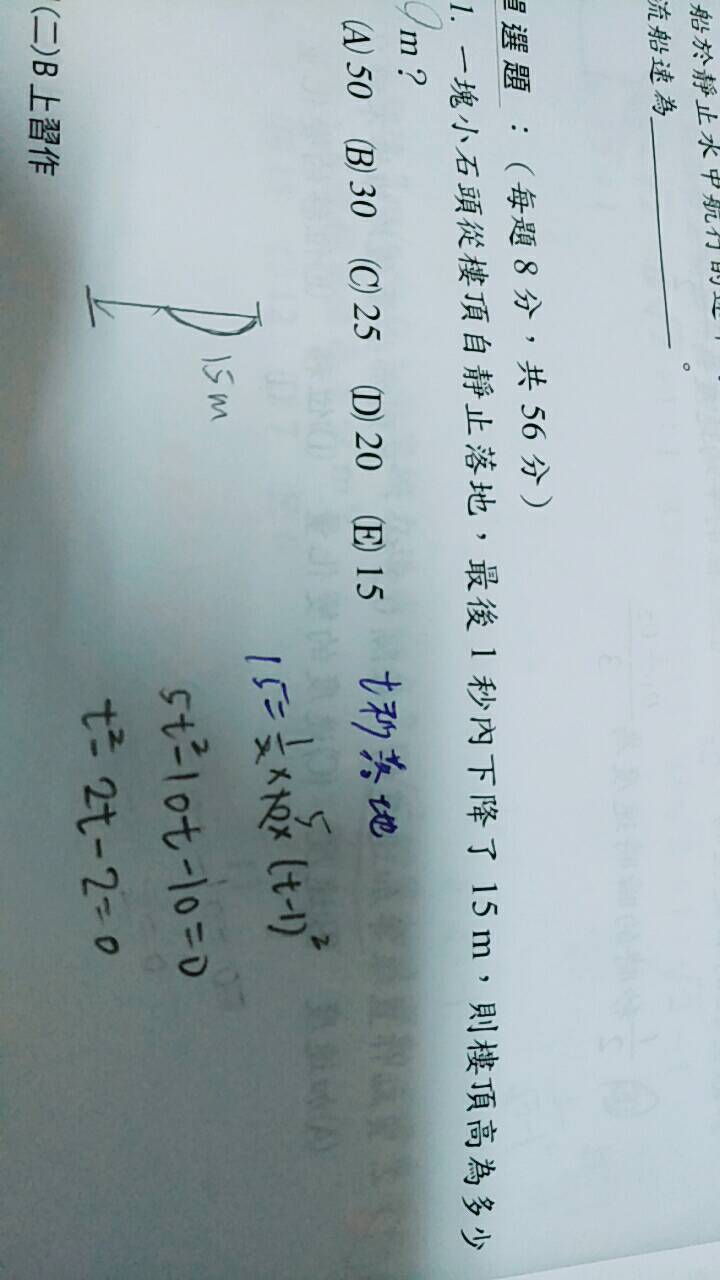 船於靜止水中航行的速
流船速為________。
選題：（每題8分，共56分）
1. 一塊小石頭從樓頂自靜止落地，最後1秒內下降了15 m，則樓頂高為多少
m？
(A) 50 (B) 30 (C) 25 (D) 20 (E) 15
t秒落地
15m
15=1/2×10×(t-1)²
5
5t²-10t-10=0
t²-2t-2=0
(二)B上習作